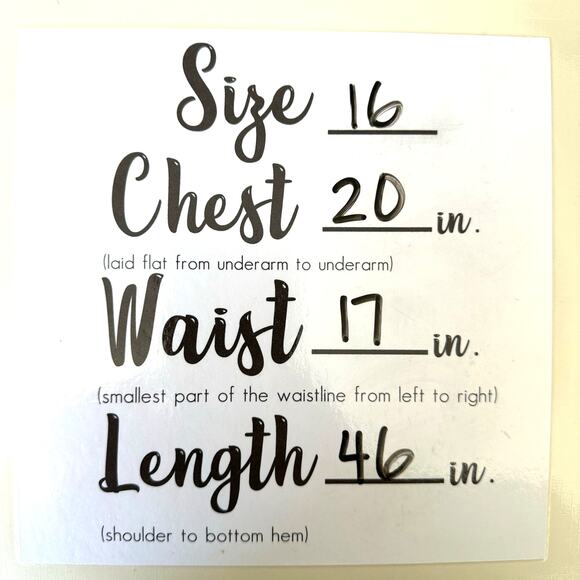 Size 16
Chest 20 in.
(laid flat from underarm to underarm)
Waist 17 in.
(smallest part of the waistline from left to right)
Length 46 in.
(shoulder to bottom hem)